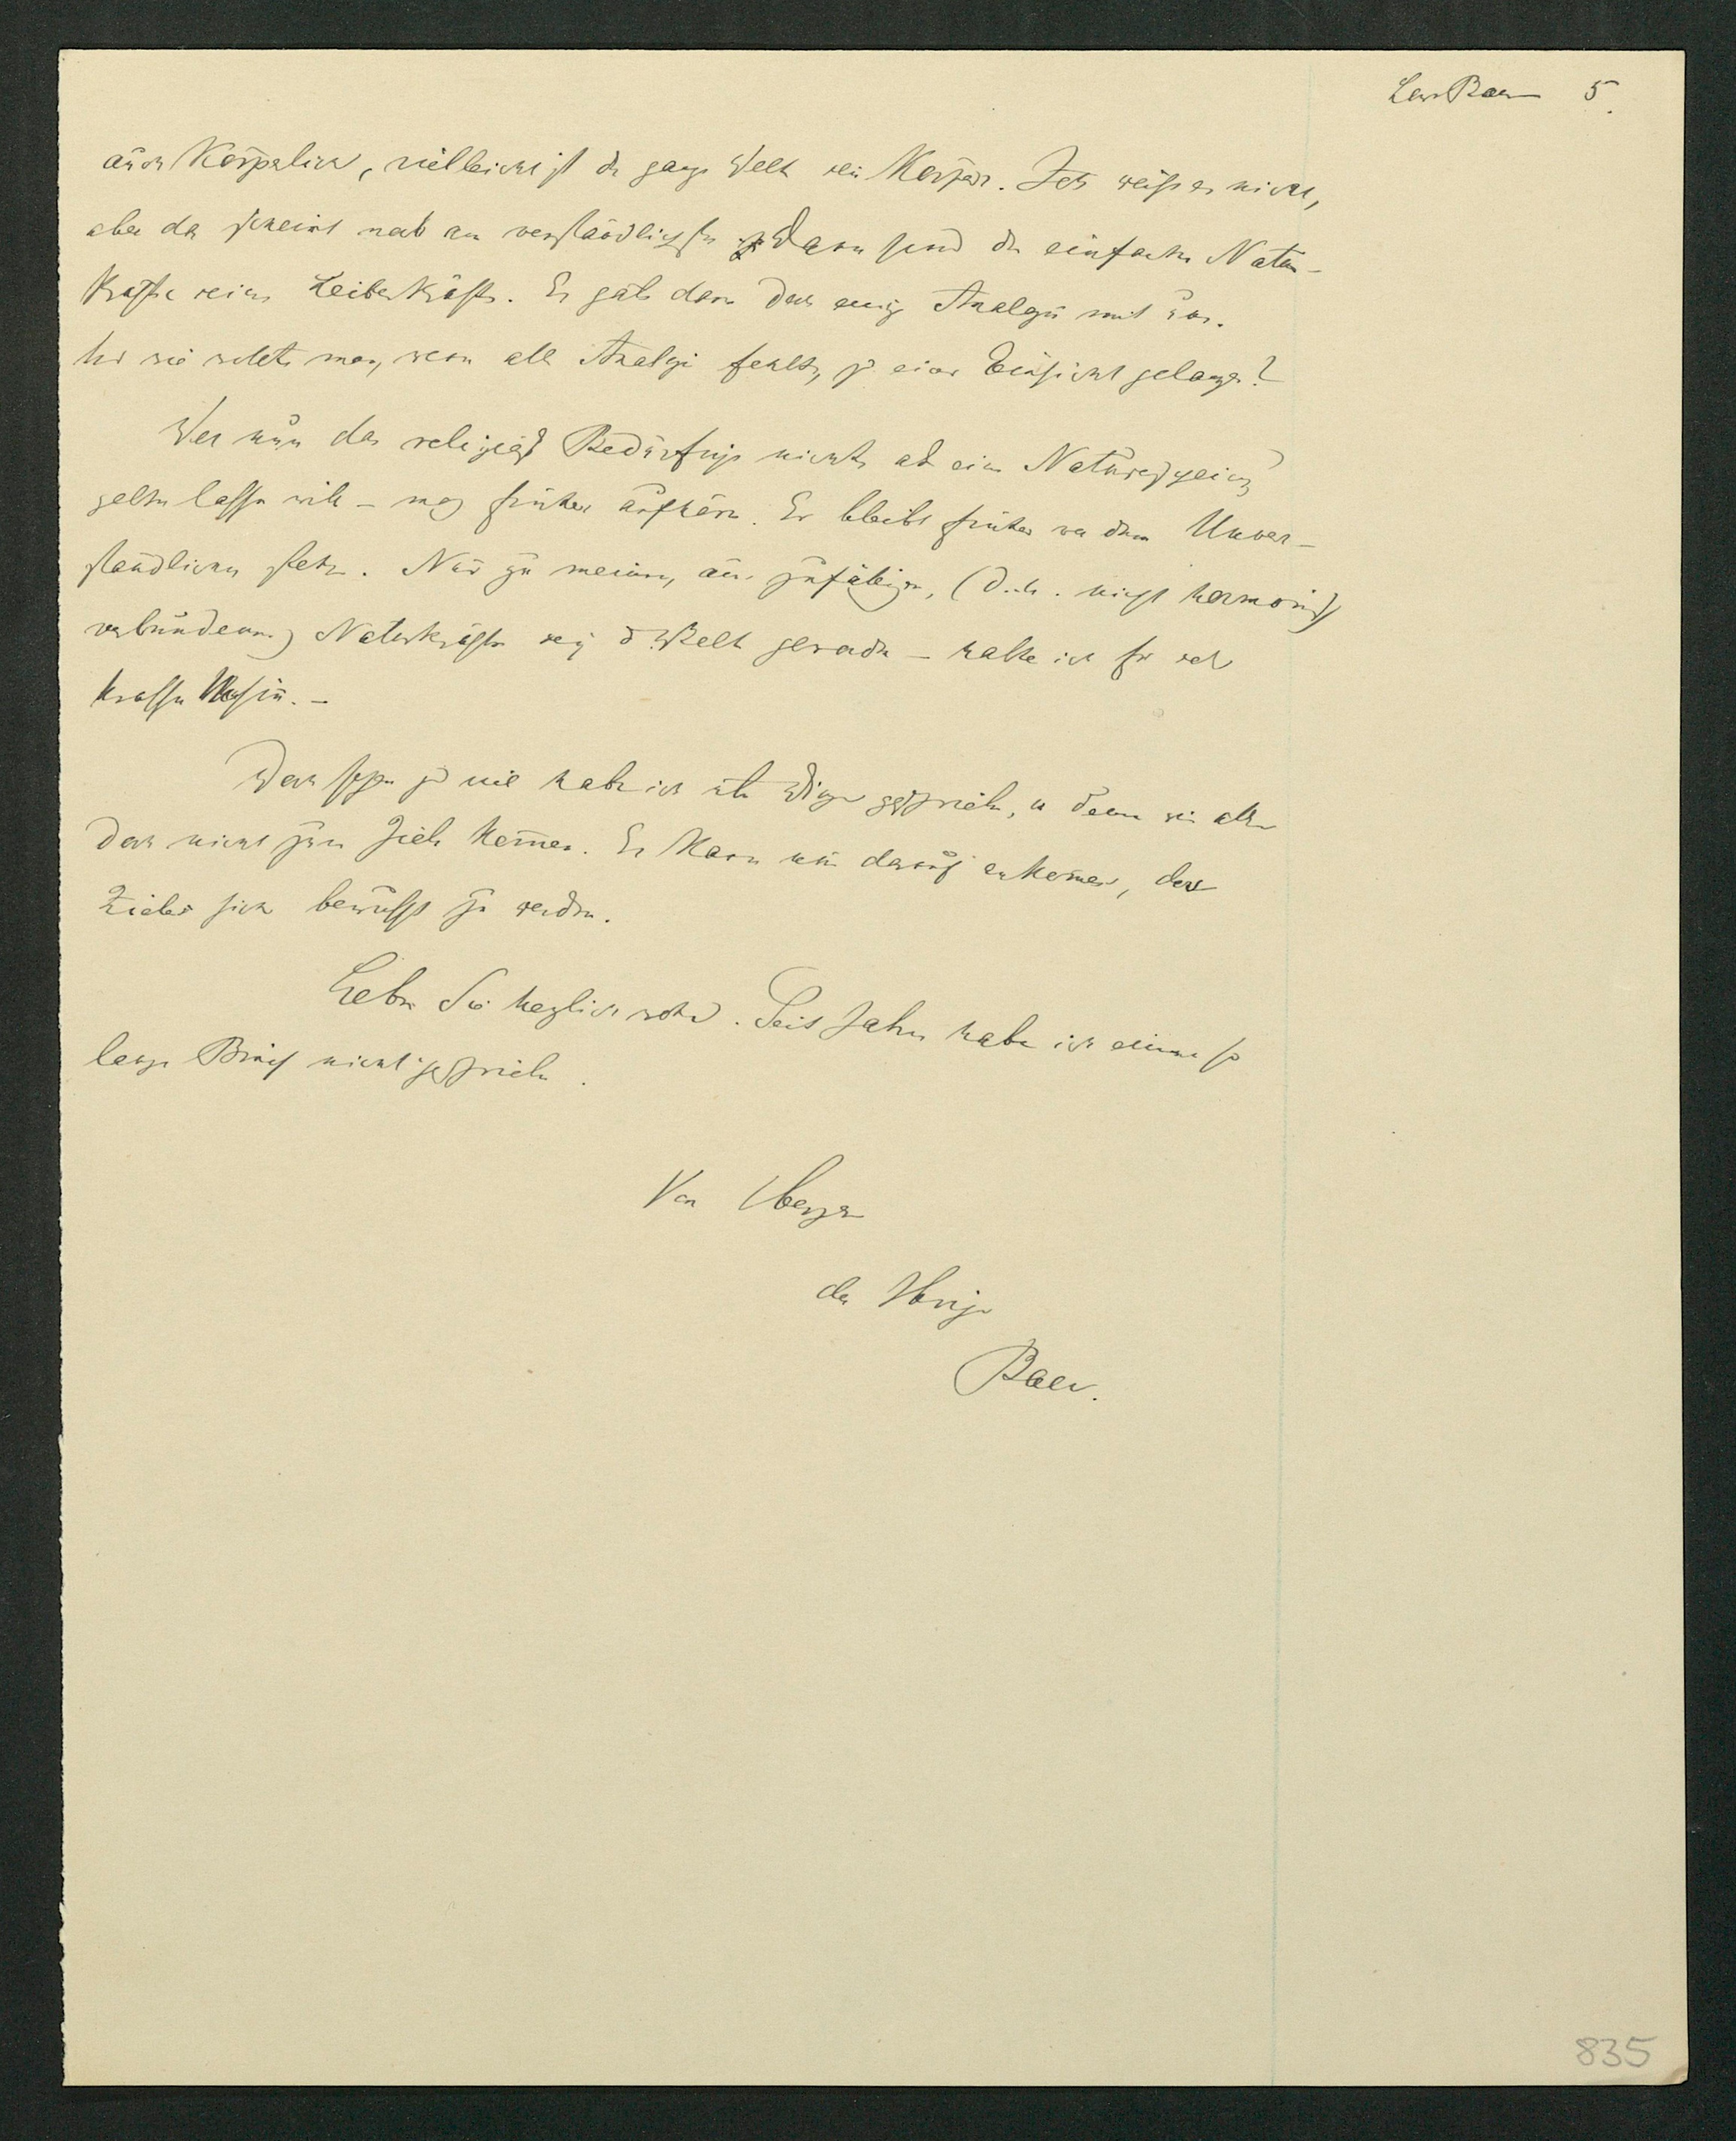 Baer 5.
auch Körperlich, vielleicht ist die ganze Welt sein Körper. Ich weiss es nicht,
aber das scheint noch am verständlichsten. Dann sind die einfachen Natur-
Kräfte seine Leibeskräfte. Es gäbe dann doch einige Analogie mit uns.
Und wie sollte man, wenn alle Analogie fehlt, zu einer Einsicht gelangen?
Wer nun das religiöse Bedürfniss nicht als ein
gelten lassen will – mag früher aufhören. Er bleibt früher vor dem Unver-
ständlichen stehn. Nur zu meinen, aus zufälligen, (d. h. nicht harmonisch
verbundenen) Naturkräften sey d. Welt geworden – halte ich für sehr
krassen Unsinn. –
Doch schon zu viel habe ich über Dinge geschrieben, in denen wir alle
doch nicht zum Ziele kommen. Es kann nur darauf ankommen, des
Zieles sich bewusst zu werden.
Leben Sie herzlich wohl. Seit Jahren habe ich einen so
langen Brief nicht geschrieben.
Von Herzen
der Ihrige
Baer.
835